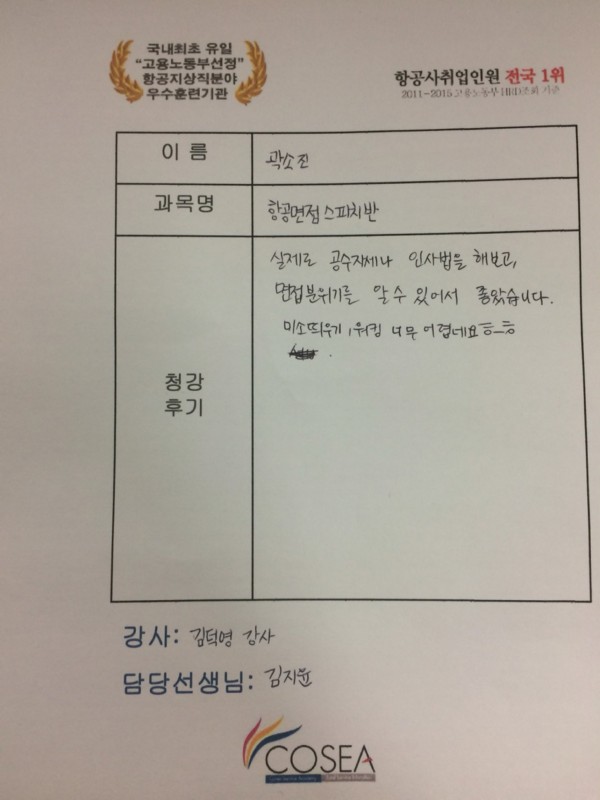 국내최초 유일
"고용노동부선정"
항공지상직분야
우수훈련기관
항공사취업인원 전국 1위
2011-2015 고용노동부 HRD조회 기준
이 름
곽소진
과목명
항공면접스피치반
청강
후기
실제로 공수자세나 인사법을 해보고,
면접분위기를 알 수 있어서 좋았습니다.
미소띄우기, 워킹 너무 어렵네요ㅠ_ㅠ
강사: 김덕영 강사
담당선생님: 김지윤
COSEA